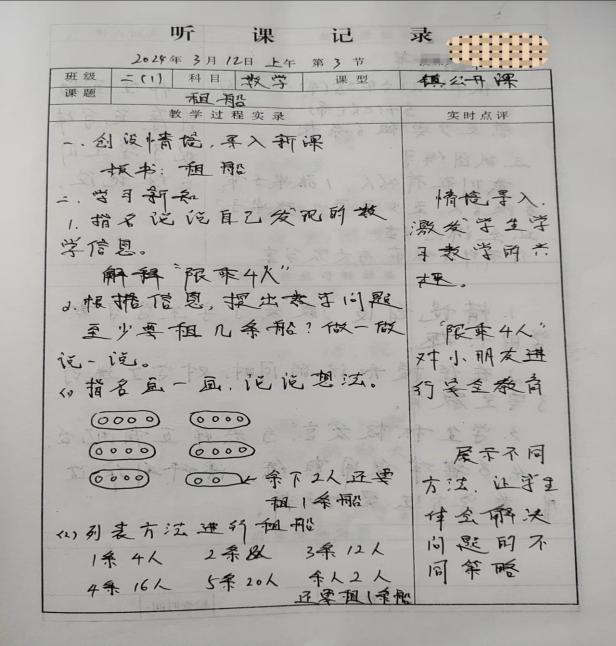 听 课 记 录
2024年 3月 12日 上午 第 3 节
班级 二(1) 科目 数学 课型 镇公开课
课题 租船
教学过程实录 实时点评
一、创设情境,导入新课
板书:租 船
二、学习新知
1. 指名说说自己发现的数
学信息。
解释“限乘4人”
2. 根据信息,提出数学问题
至少要租几条船?做一做
说一说。
(1) 指名画一画,说说想法。
余下2人还要
租1条船
(2) 列表方法进行租船
1条 4人 2条 8人 3条 12人
4条 16人 5条 20人 余人2人
还要租1条船
情境导入,
激发学生学
习数学的兴
趣。
“限乘4人”
对小朋友进
行安全教育
展示不同
方法,让学生
体会解决
问题的不
同策略